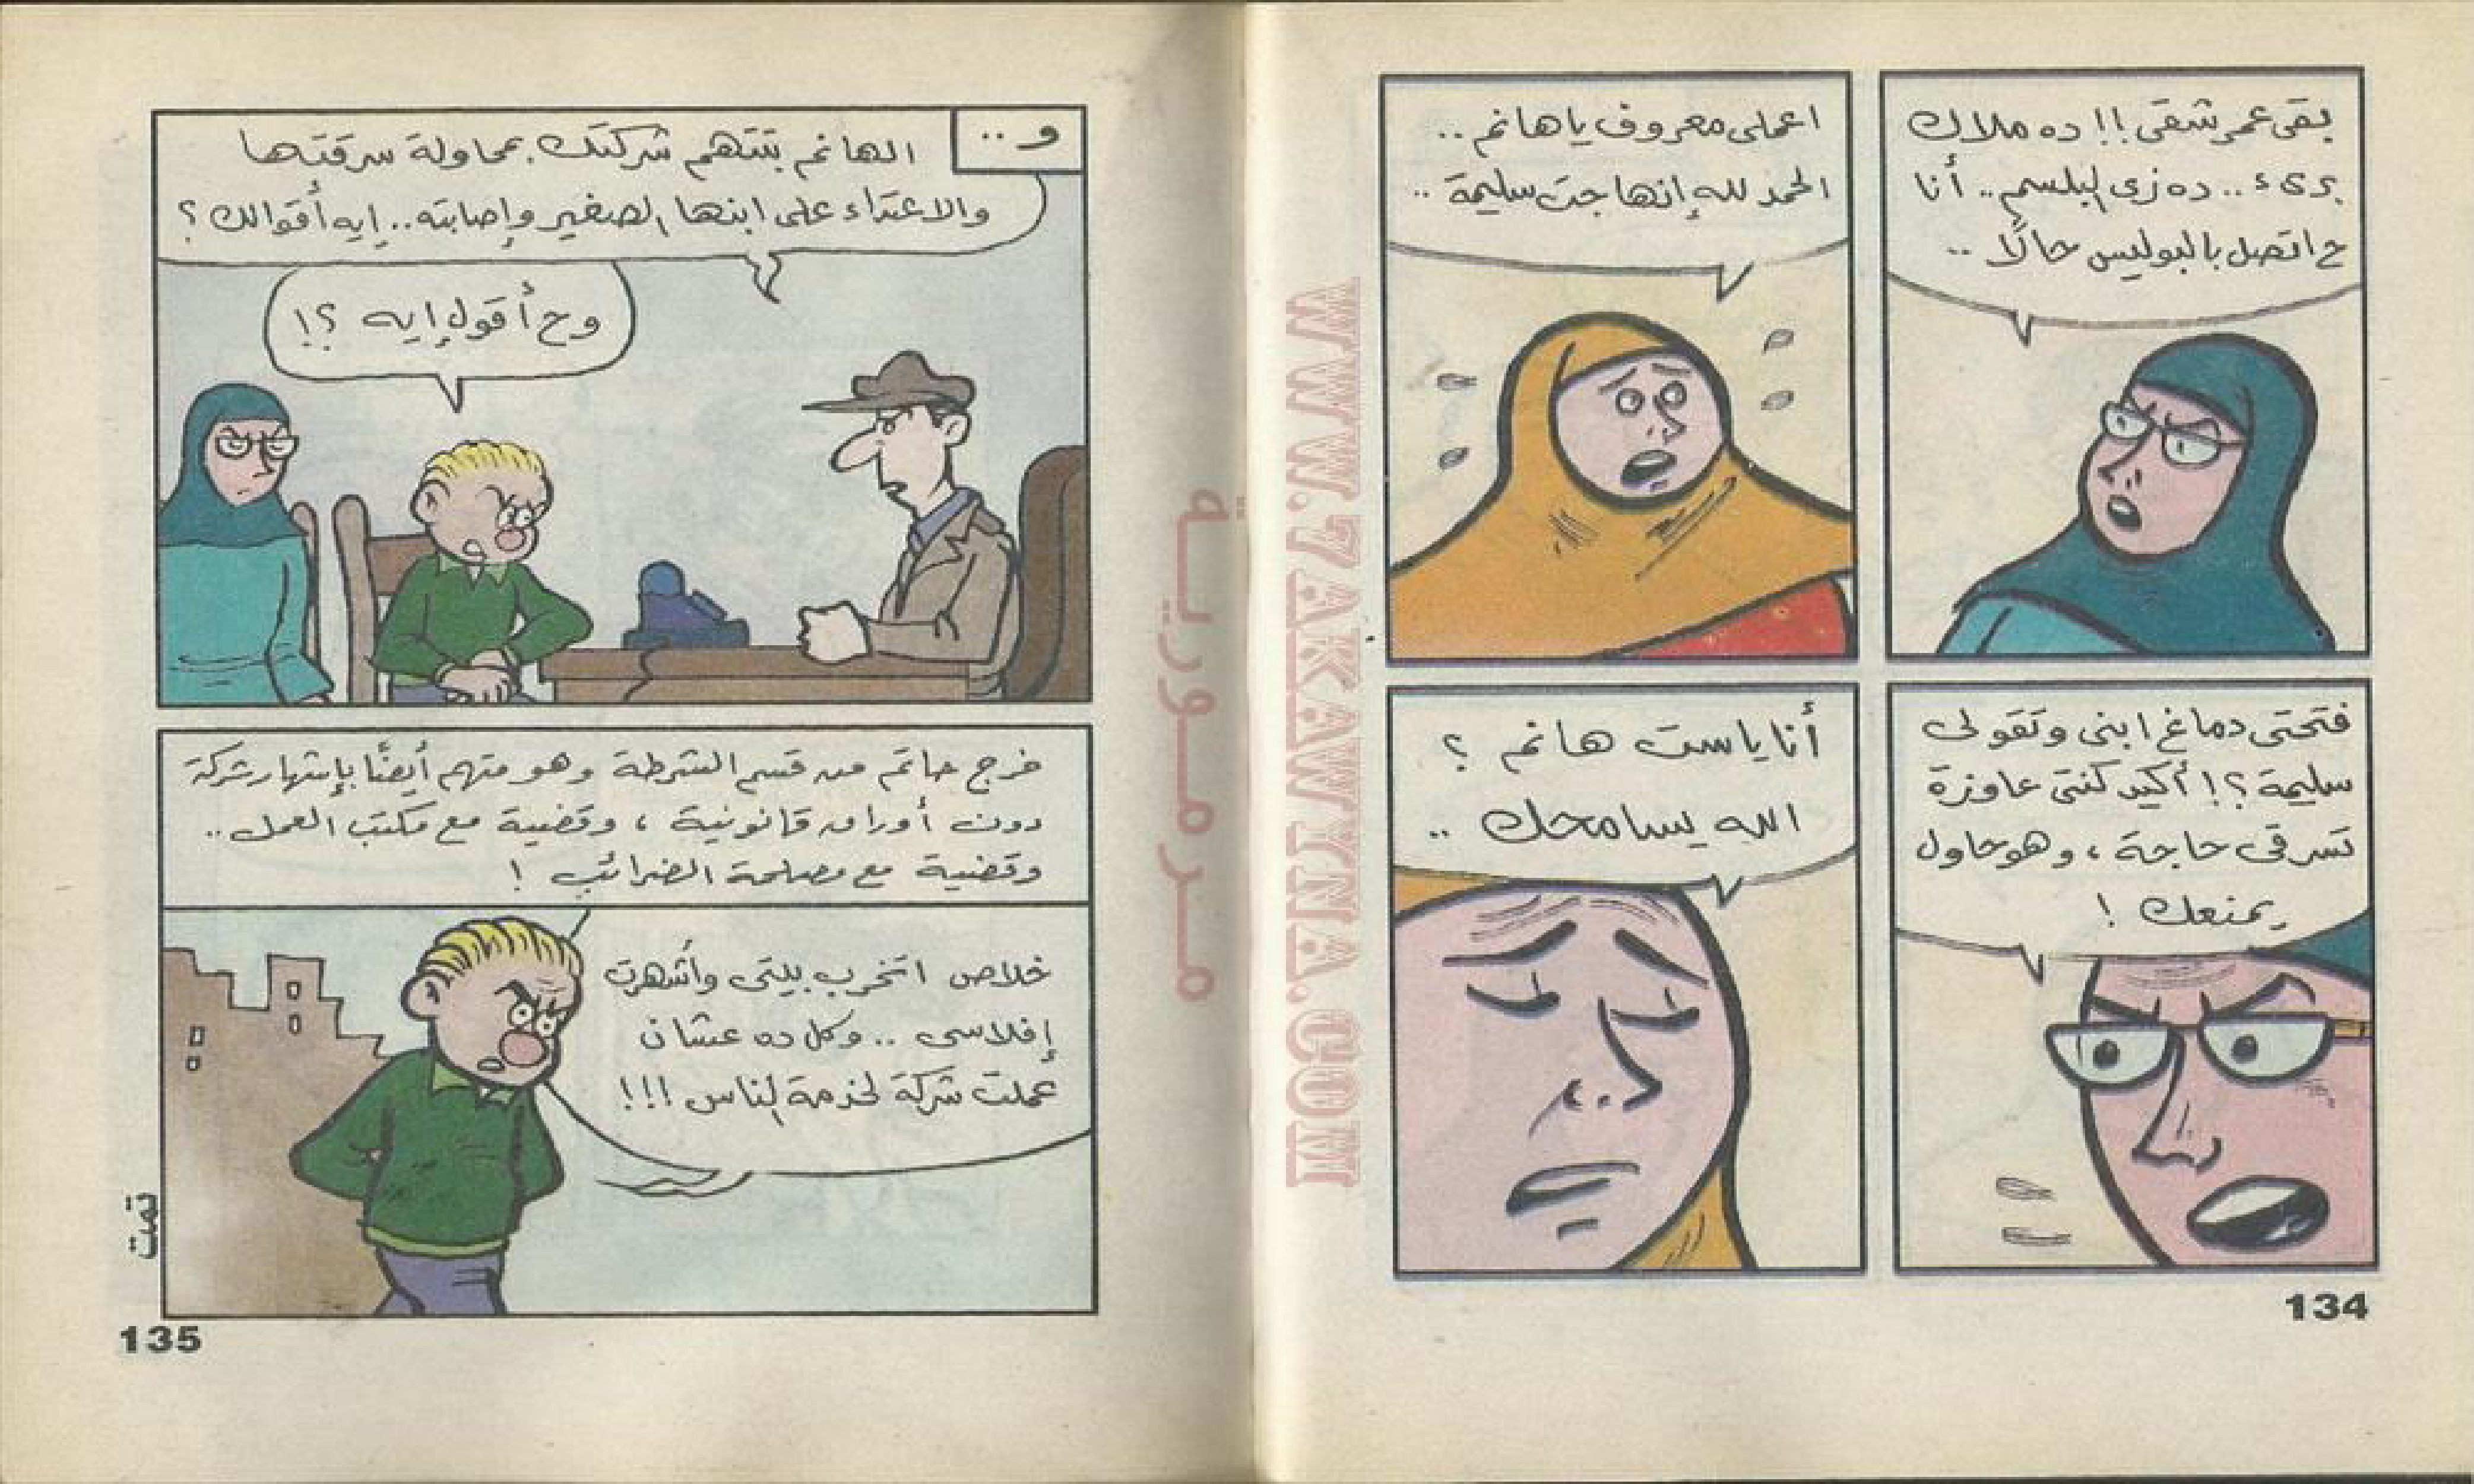 بقى عمر شقى !! ده ملاك
برىء .. ده زى البلسم .. أنا
ح اتصل بالبوليس حالًا ..
اعملى معروف يا هانم ..
الحمد لله إنها جت سليمة ..
فتحتى دماغ ابنى وتقولى
سليمة ؟! أكيد كنتى عاوزة
تسرقى حاجة ، وهو حاول
يمنعك !
أنا يا ست هانم ؟
الله يسامحك ..
134
و ..
الهانم بتتهم شركتك بمحاولة سرقتها
والاعتداء على ابنها الصغير وإصابته .. إيه أقوالك ؟
وح أقول إيه ؟!
خرج حاتم من قسم الشرطة وهو متهم أيضًا بإشهار شركة
دون أوراق قانونية ، وقضية مع مكتب العمل ..
وقضية مع مصلحة الضرائب !
خلاص اتخرب بيتى وأشهرت
إفلاسى .. وكل ده عشان
عملت شركة لخدمة الناس !!!
تمت
135
مرمورية
WWW.7AKAWYNA.COM